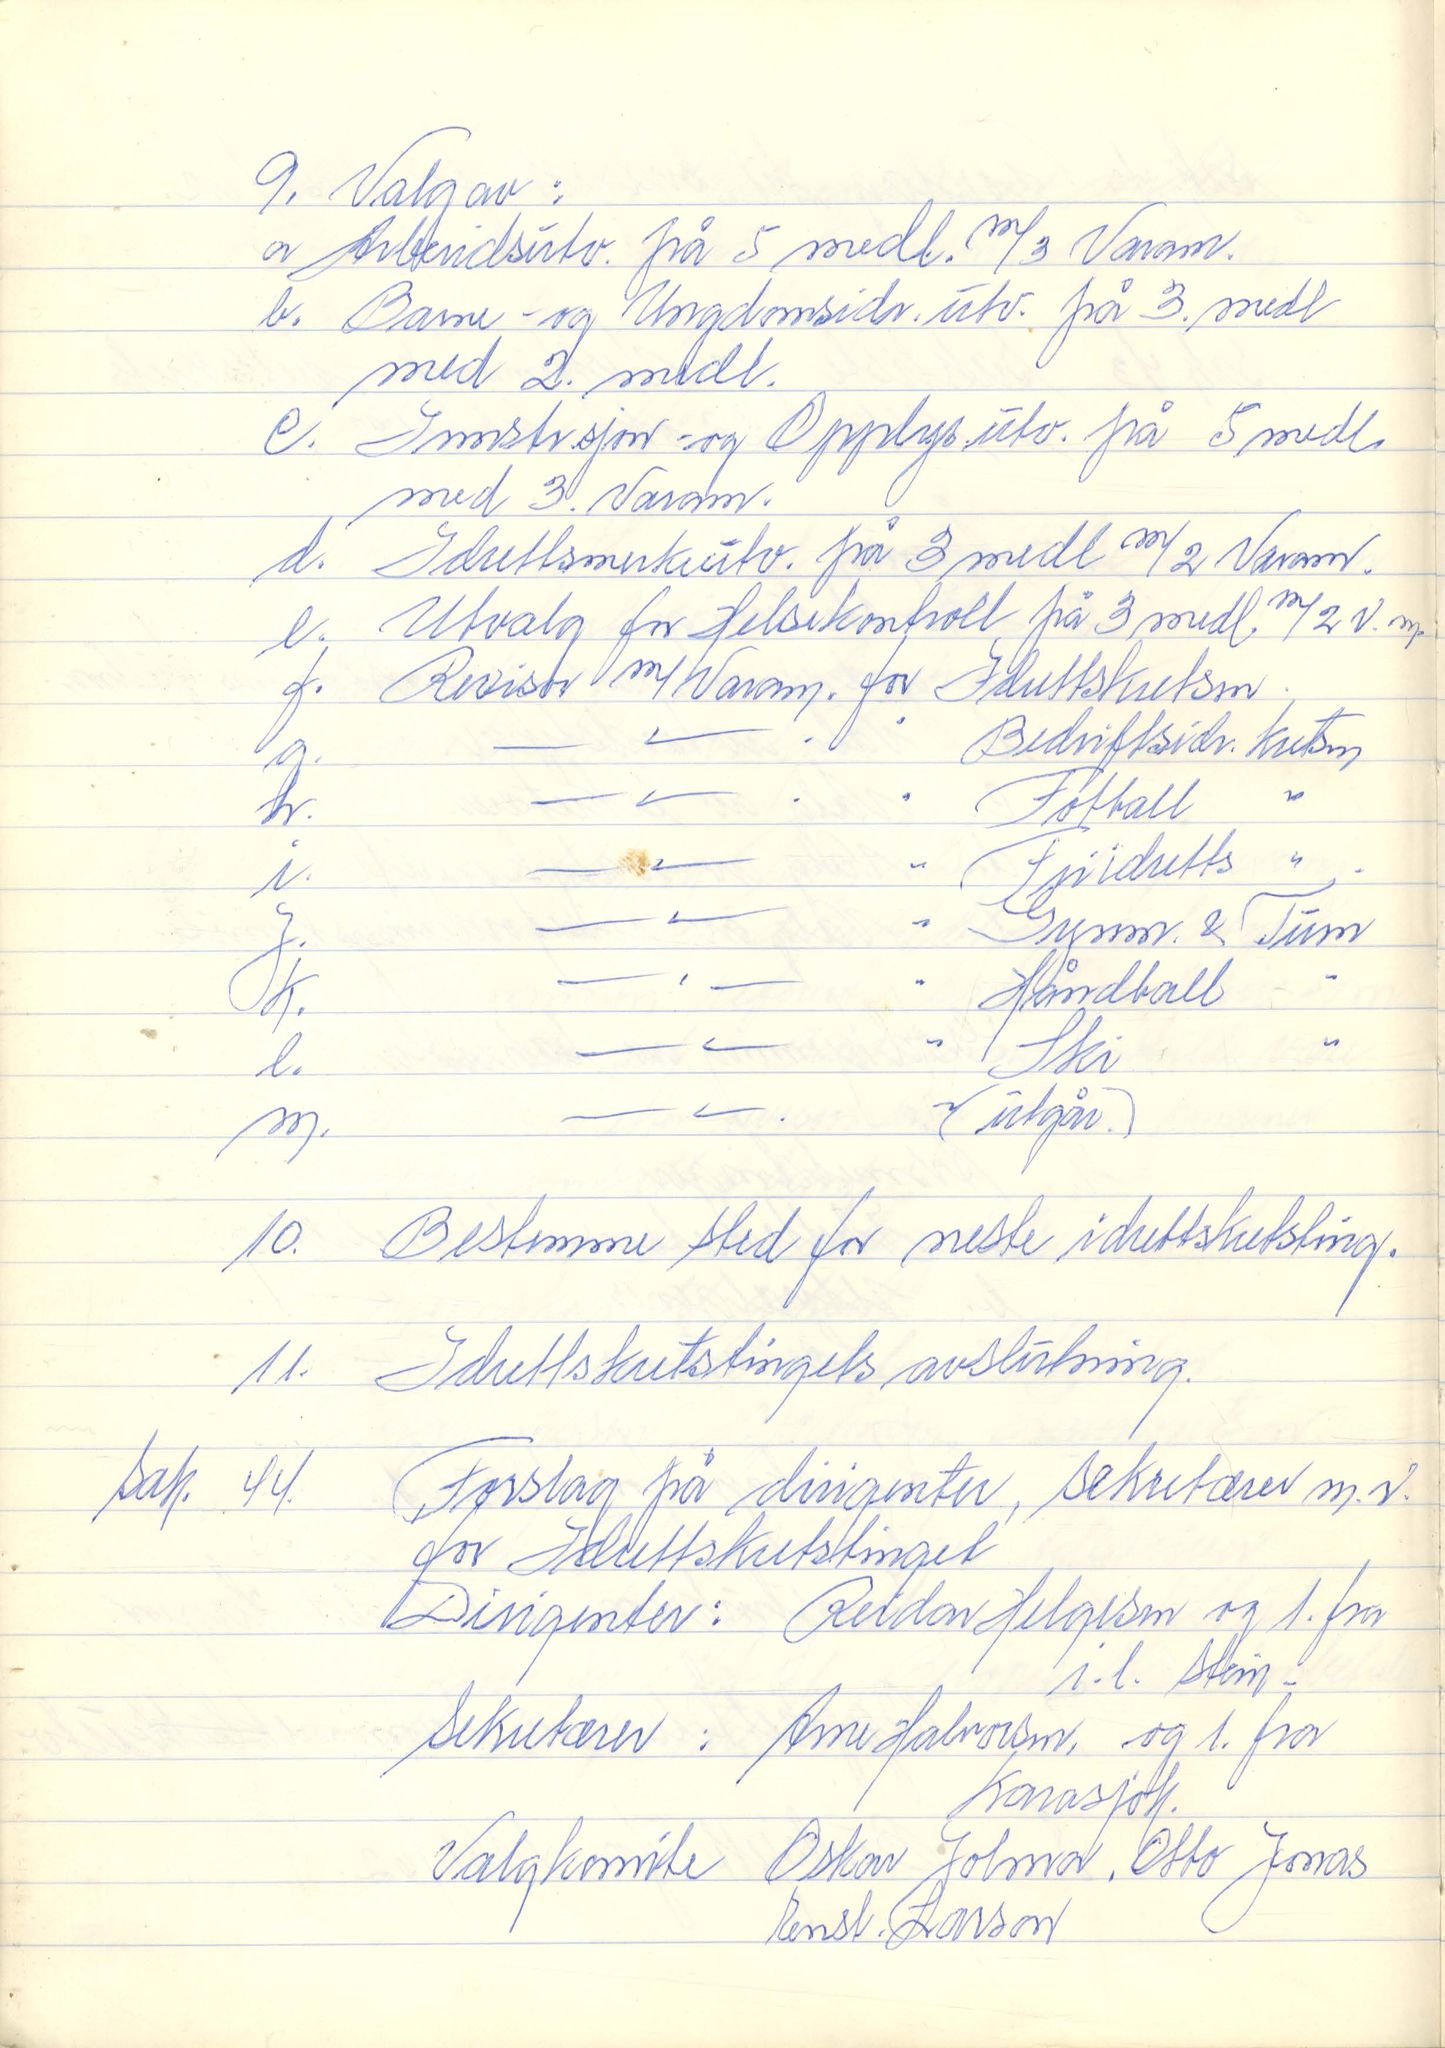 9. Valg av :
a Arbeidsutv. på 5 medl. m/3 Varam.
b. Barne - og Ungdomsidr. utv. på 3. medl
med 2. medl.
c. Innstr.sjon - og Opplys.utv. på 5 medl.
med 3. Varam.
d. Idrettsmerkeutv. på 3 medl m/2 Varam.
e. Utvalg for Helsekontroll på 3 medl. m/2 V. m.
f. Revisor m/Varam. for Idrettskretsen.
g. — " — . " Bedriftsidr. kretsen
h. — " — . " Fotball "
i. — " — " Friidretts "
j. — " — " Gymn. & Turn
k. — " — " Håndball "
l. — " — " Ski "
m. — " — . " (utgår.)
10. Bestemme sted for neste idrettskretsting.
11. Idrettskretstingets avslutning.
Sak. 44. Forslag på dirigenter, sekretærer m.v.
for Idrettskretstinget
Dirigenter: Reidar Helgesen og 1. fra
i.l. Stein -
Sekretærer : Arne Halvorsen, og 1. fra
Karasjok.
Valgkomite Oskar Jolma, Otto Jonas
Larson